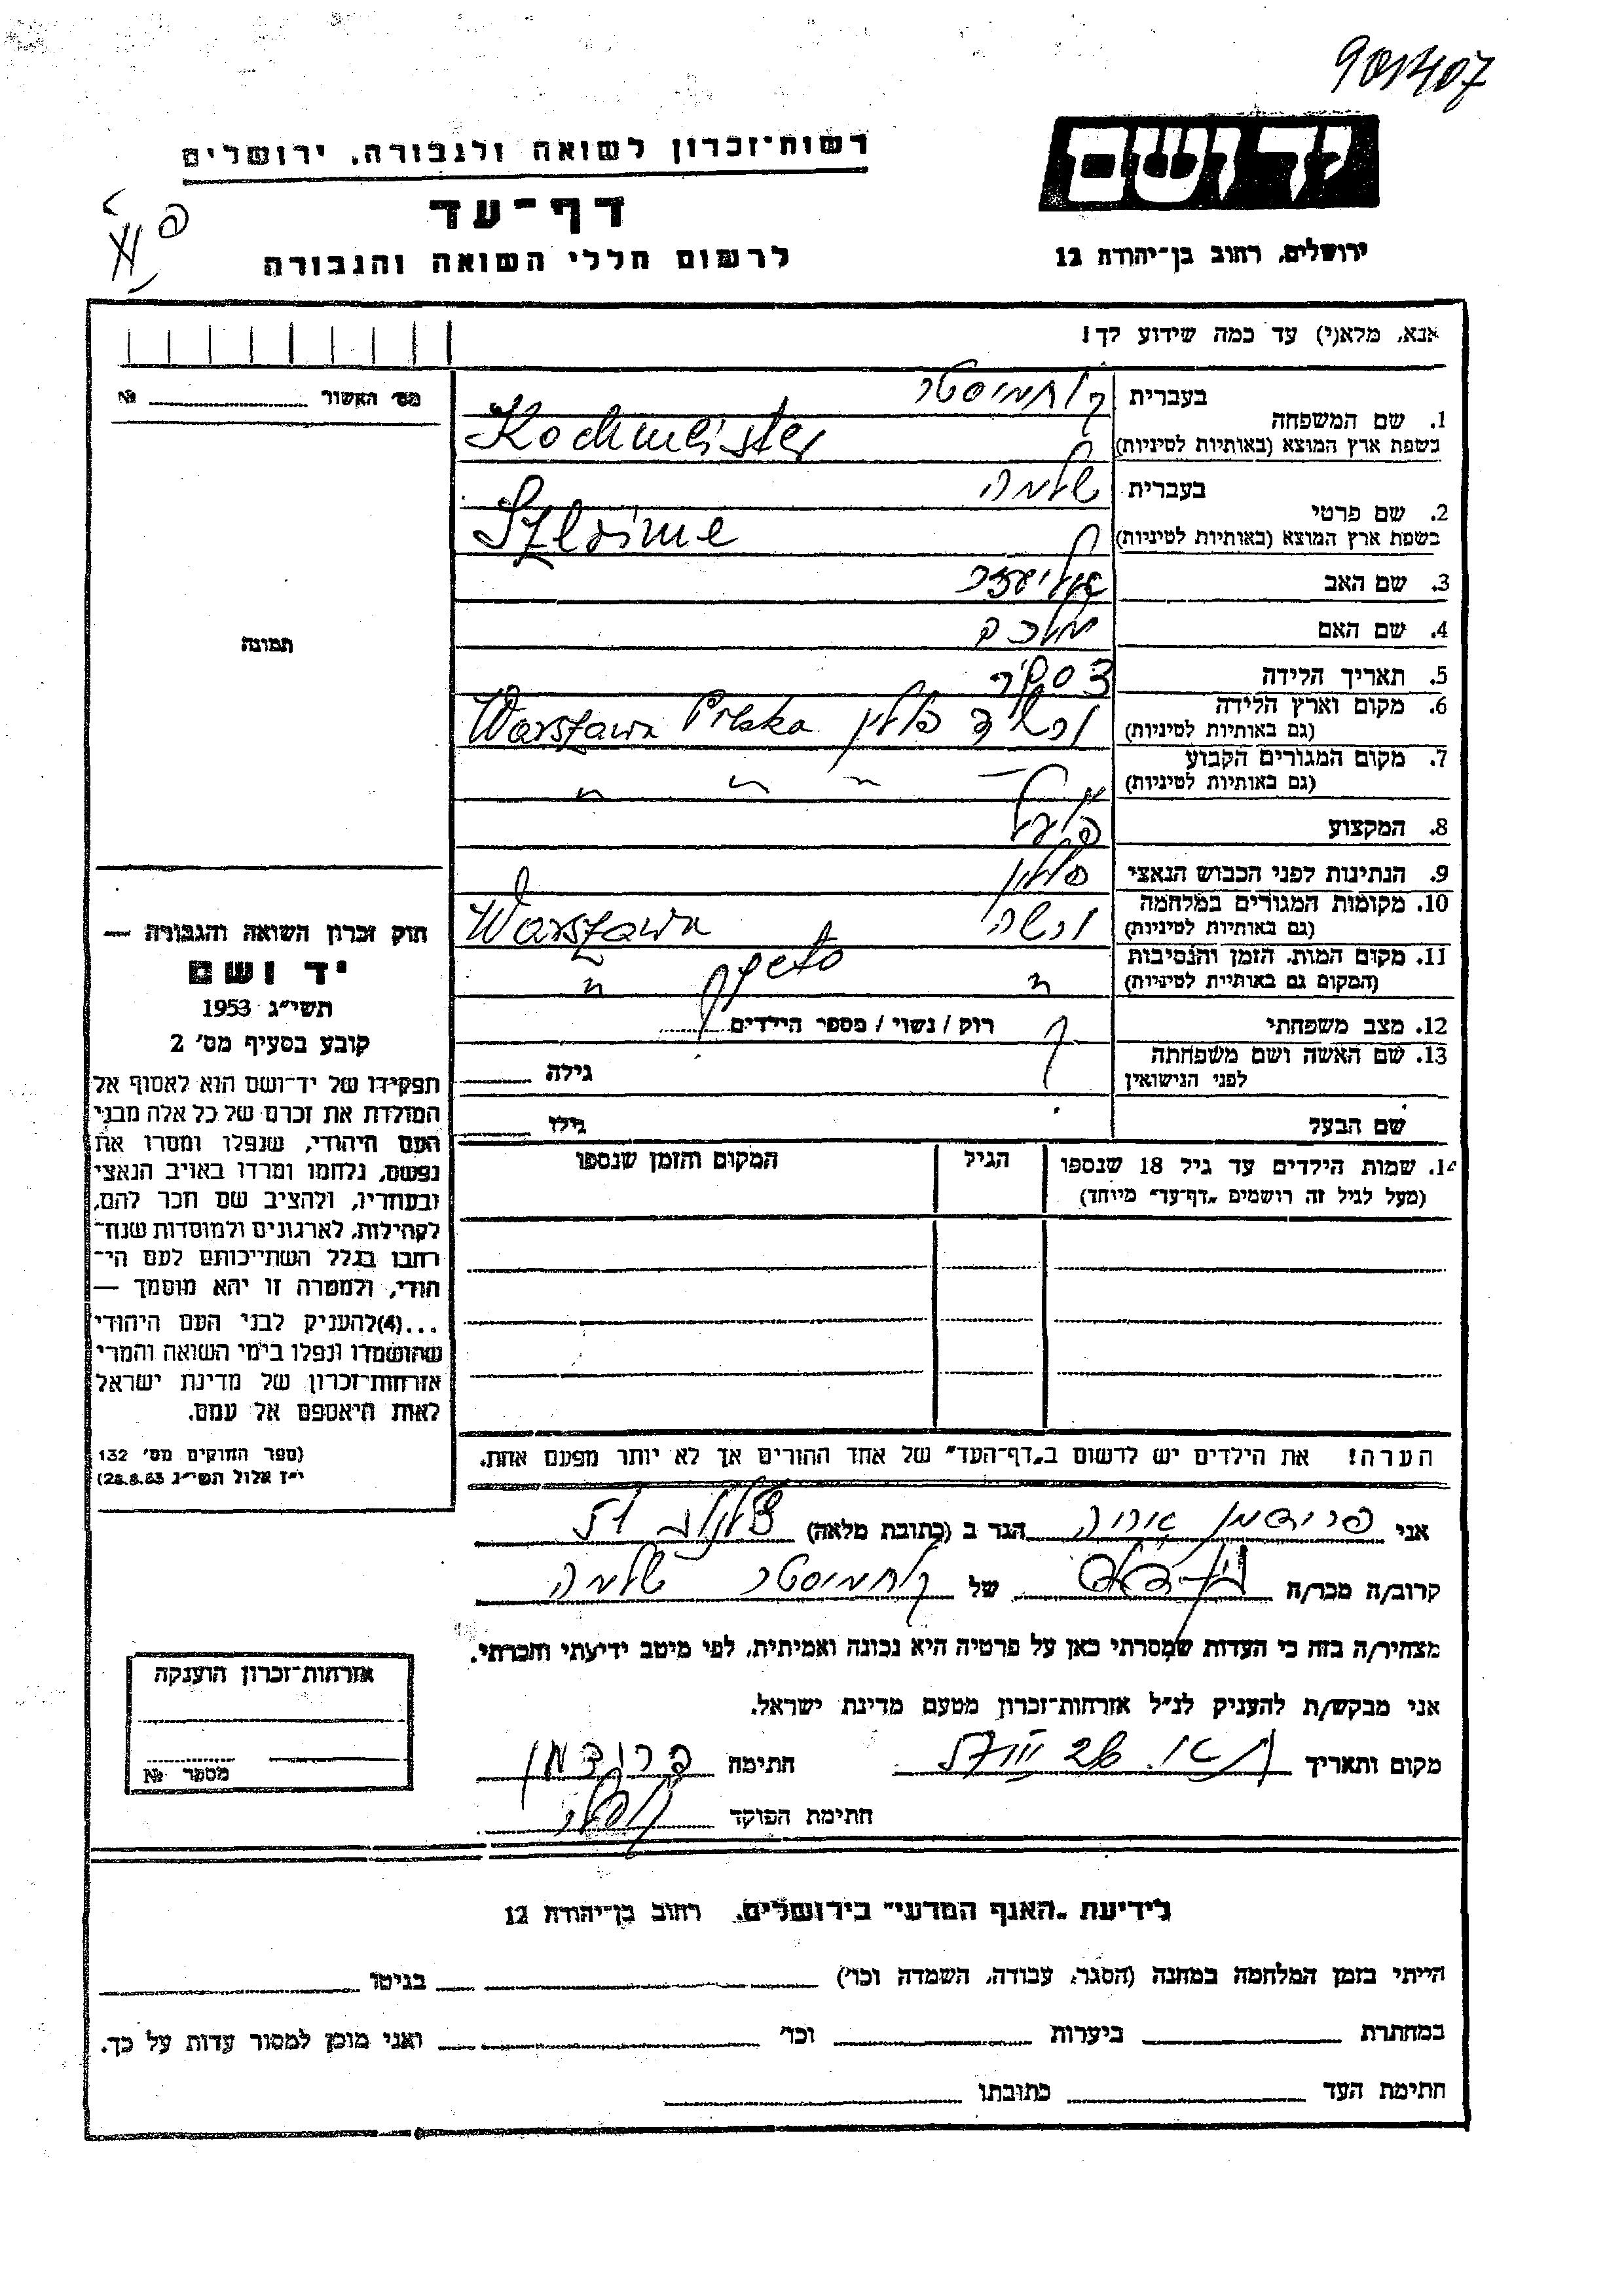 רשות־זכרון לשואה ולגבורה, ירושלים
יד ושם
דף־עד
לרשום חללי השואה והגבורה
ירושלים, רחוב בן־יהודה 12
אנא, מלא(י) עד כמה שידוע לך!
מס׳ האשור № 
1. שם המשפחה
בעברית קוחמיסטר
בשפת ארץ המוצא (באותיות לטיניות) Kochmeister
2. שם פרטי
בעברית שלמה
בשפת ארץ המוצא (באותיות לטיניות)
3. שם האב אליעזר
4. שם האם
5. תאריך הלידה
6. מקום וארץ הלידה
(גם באותיות לטיניות) ורשה פולין Warszawa Polska
7. מקום המגורים הקבוע
(גם באותיות לטיניות)
8. המקצוע פועל
9. הנתינות לפני הכבוש הנאצי פולין
10. מקומות המגורים במלחמה
(גם באותיות לטיניות) ורשה Warszawa
11. מקום המות, הזמן והנסיבות
(המקום גם באותיות לטיניות) geto
12. מצב משפחתי רוק / נשוי / מספר הילדים
13. שם האשה ושם משפחתה
לפני הנישואין
גילה
שם הבעל גילו
14. שמות הילדים עד גיל 18 שנספו
(מעל לגיל זה רושמים „דף־עד״ מיוחד)
הגיל
המקום והזמן שנספו
הערה! את הילדים יש לרשום ב„דף־העד״ של אחד ההורים אך לא יותר מפעם אחת.
תמונה
חוק זכרון השואה והגבורה —
יד ושם
תשי״ג 1953
קובע בסעיף מס׳ 2
תפקידו של יד־ושם הוא לאסוף אל
המולדת את זכרם של כל אלה מבני
העם היהודי, שנפלו ומסרו את
נפשם, נלחמו ומרדו באויב הנאצי
ובעוזריו, ולהציב שם וזכר להם,
לקהילות, לארגונים ולמוסדות שנח־
רבו בגלל השתייכותם לעם הי־
הודי, ולמטרה זו יהא מוסמך —
...(4)להעניק לבני העם היהודי
שהושמדו ונפלו בימי השואה והמרי
אזרחות־זכרון של מדינת ישראל
לאות היאספם אל עמם.
(ספר החוקים מס׳ 132
י״ז אלול תשי״ג 28.8.53)
אני פרידמן אריה הגר ב (כתובת מלאה)
קרוב/ה מכר/ה של קוחמיסטר שלמה
מצהיר/ה בזה כי העדות שמסרתי כאן על פרטיה היא נכונה ואמיתית, לפי מיטב ידיעתי והכרתי.
אני מבקש/ת להעניק לנ״ל אזרחות־זכרון מטעם מדינת ישראל.
מקום ותאריך חתימה פרידמן
חתימת הפוקד
אזרחות־זכרון הוענקה
מספר №
לידיעת „האגף המדעי״ בירושלים, רחוב בן־יהודה 12
הייתי בזמן המלחמה במחנה (הסגר, עבודה, השמדה וכו׳) בגיטו
במחתרת ביערות וכו׳ ואני מוכן למסור עדות על כך.
חתימת העד כתובתו